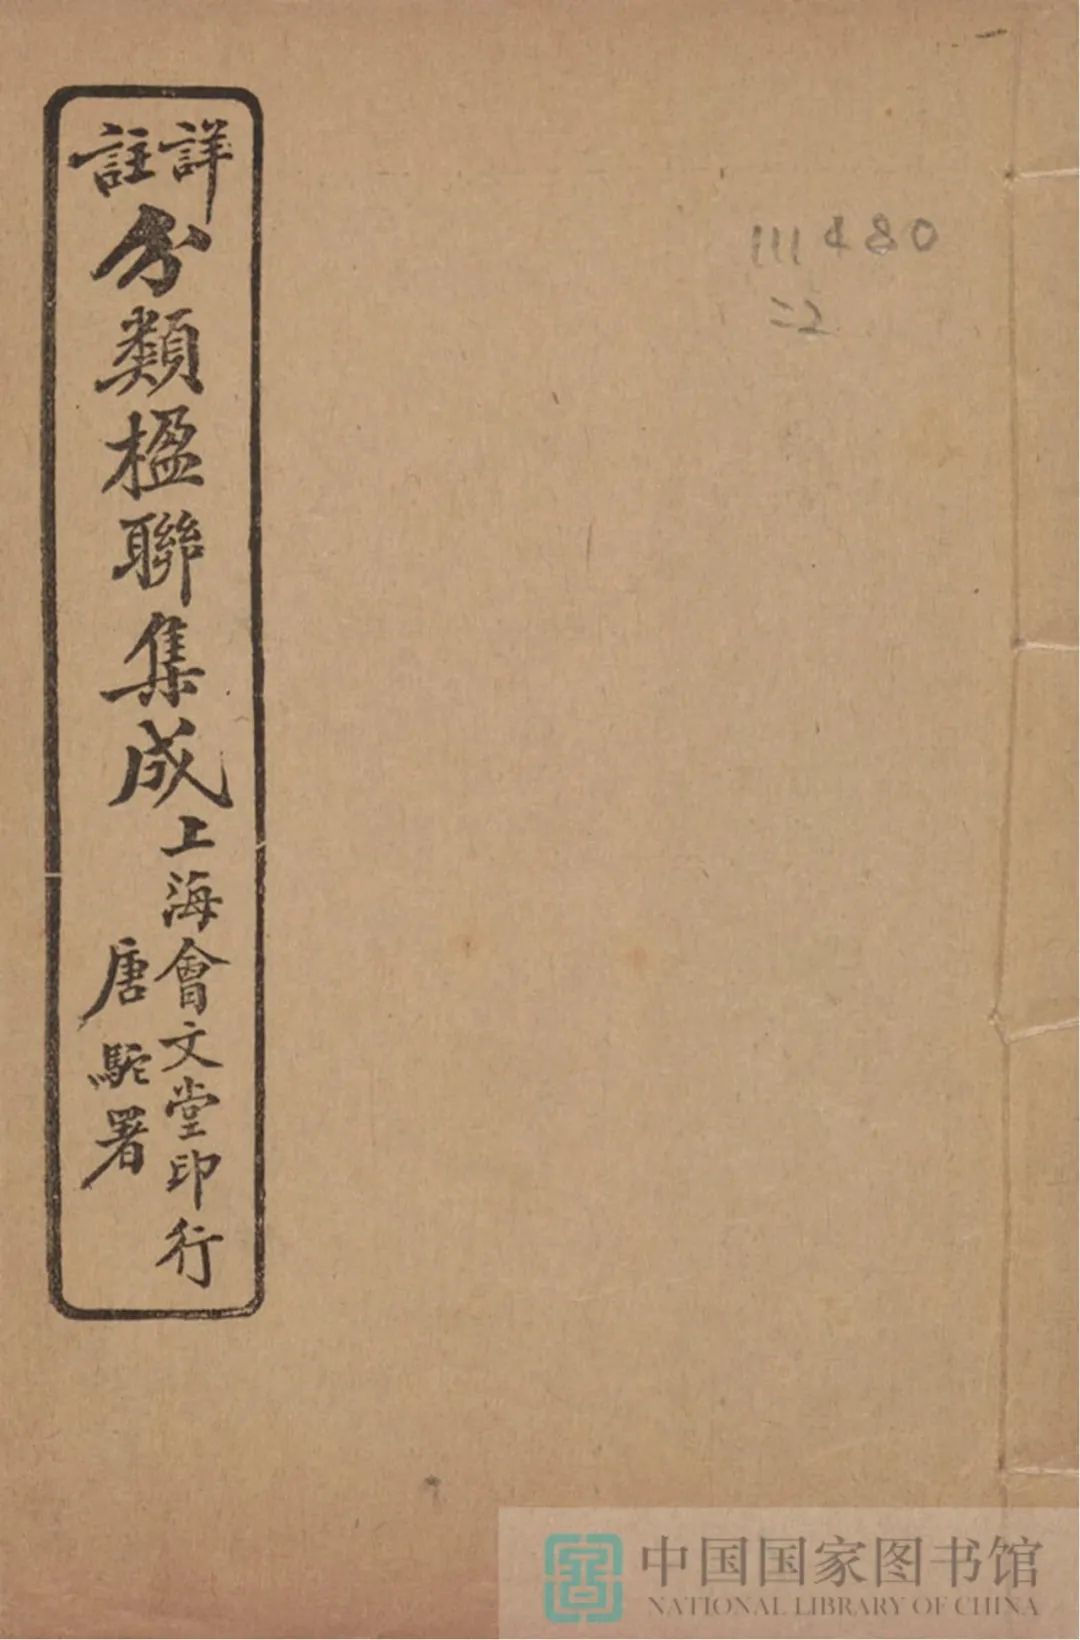 詳註
分類楹聯集成
上海會文堂印行
唐駝署
111480
二2
中国国家图书馆
NATIONAL LIBRARY OF CHINA